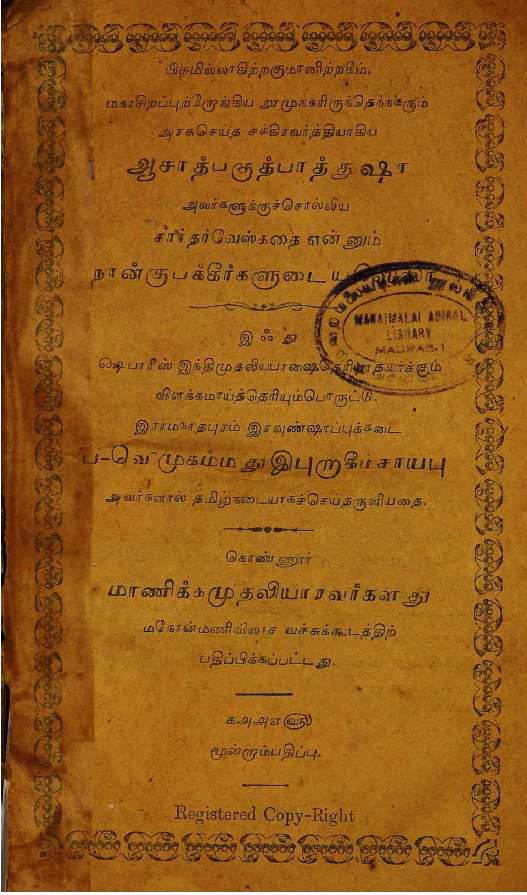 பிசுமில்லாகிற்றகுமானிற்றகீம்.
மகாசிறப்புற்றோங்கிய றூமுநகரிருந்தெந்நகரும்
அரசுசெய்த சக்கிரவர்த்தியாகிய
ஆசாத்பகுத்பாத்துஷா
அவர்களுக்குச்சொல்லிய
சார்தர்வேஸ்கதை என்னும்
நான்குபக்கீர்களுடைய
இஃது
பாரீஸ் இந்திமுதலியபாஷைதெரியாதவர்க்கும்
விளக்கமாய்த்தெரியும்பொருட்டு.
இராமநாதபுரம் இரவுண்ஷாப்புக்கடை
ப-வெ முகம்மது இபுறாகீம்சாயபு
அவர்களால் தமிழ்நடையாகச்செய்தருளியதை.
கொண்ணூர்
மாணிக்கமுதலியாரவர்களது
மநோன்மணிவிலாச வச்சுக்கூடத்திற்
பதிப்பிக்கப்பட்டது.
கஅஅஎ௵
மூன்றாம்பதிப்பு.
Registered Copy-Right
MARAIMALAI ADIGAL
LIBRARY
MADRAS-1